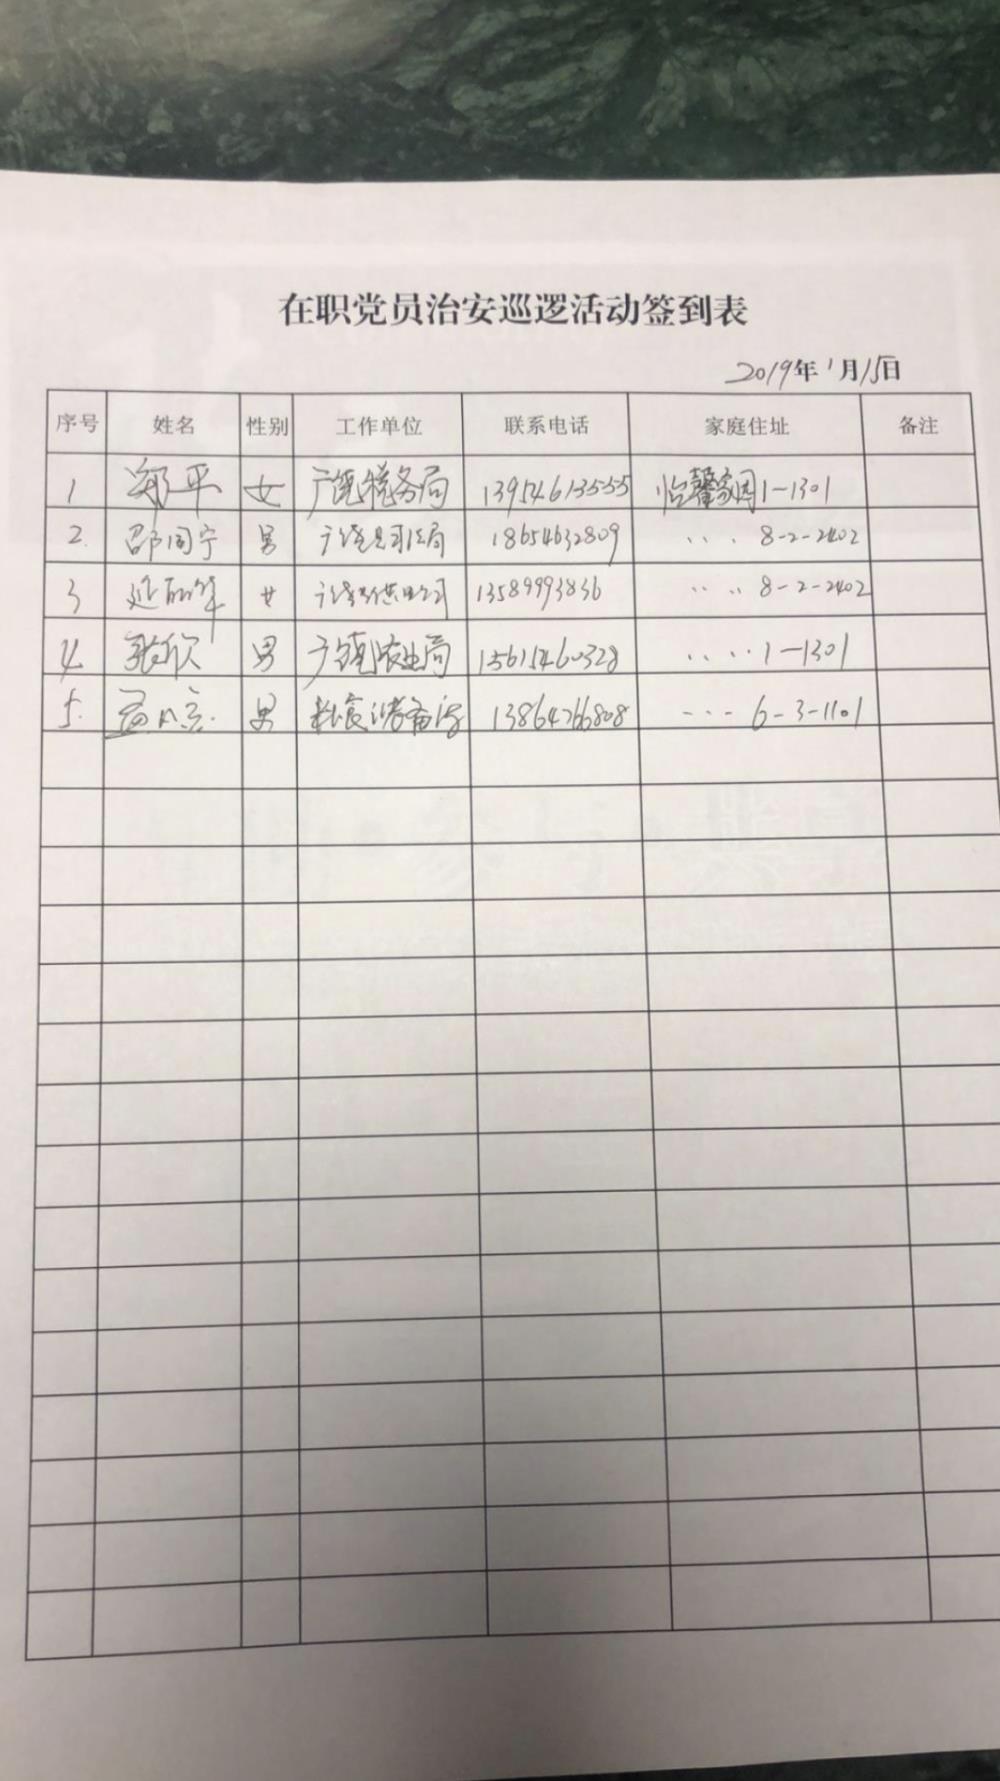 在职党员治安巡逻活动签到表
2019年1月15日
序号 姓名 性别 工作单位 联系电话 家庭住址 备注
1 郑平 女 广饶税务局 13954613555 怡馨家园1-1301
2. 邵同宁 男 广饶县司法局 18654632809 〃 〃 8-2-2402
3 延丽华 女 广饶供电公司 13589993836 〃 〃 8-2-2402
4 张欣 男 广饶农业局 15615460328 〃 〃 1-1301
5. 男 粮食储备库 13864766808 〃 〃 6-3-1101